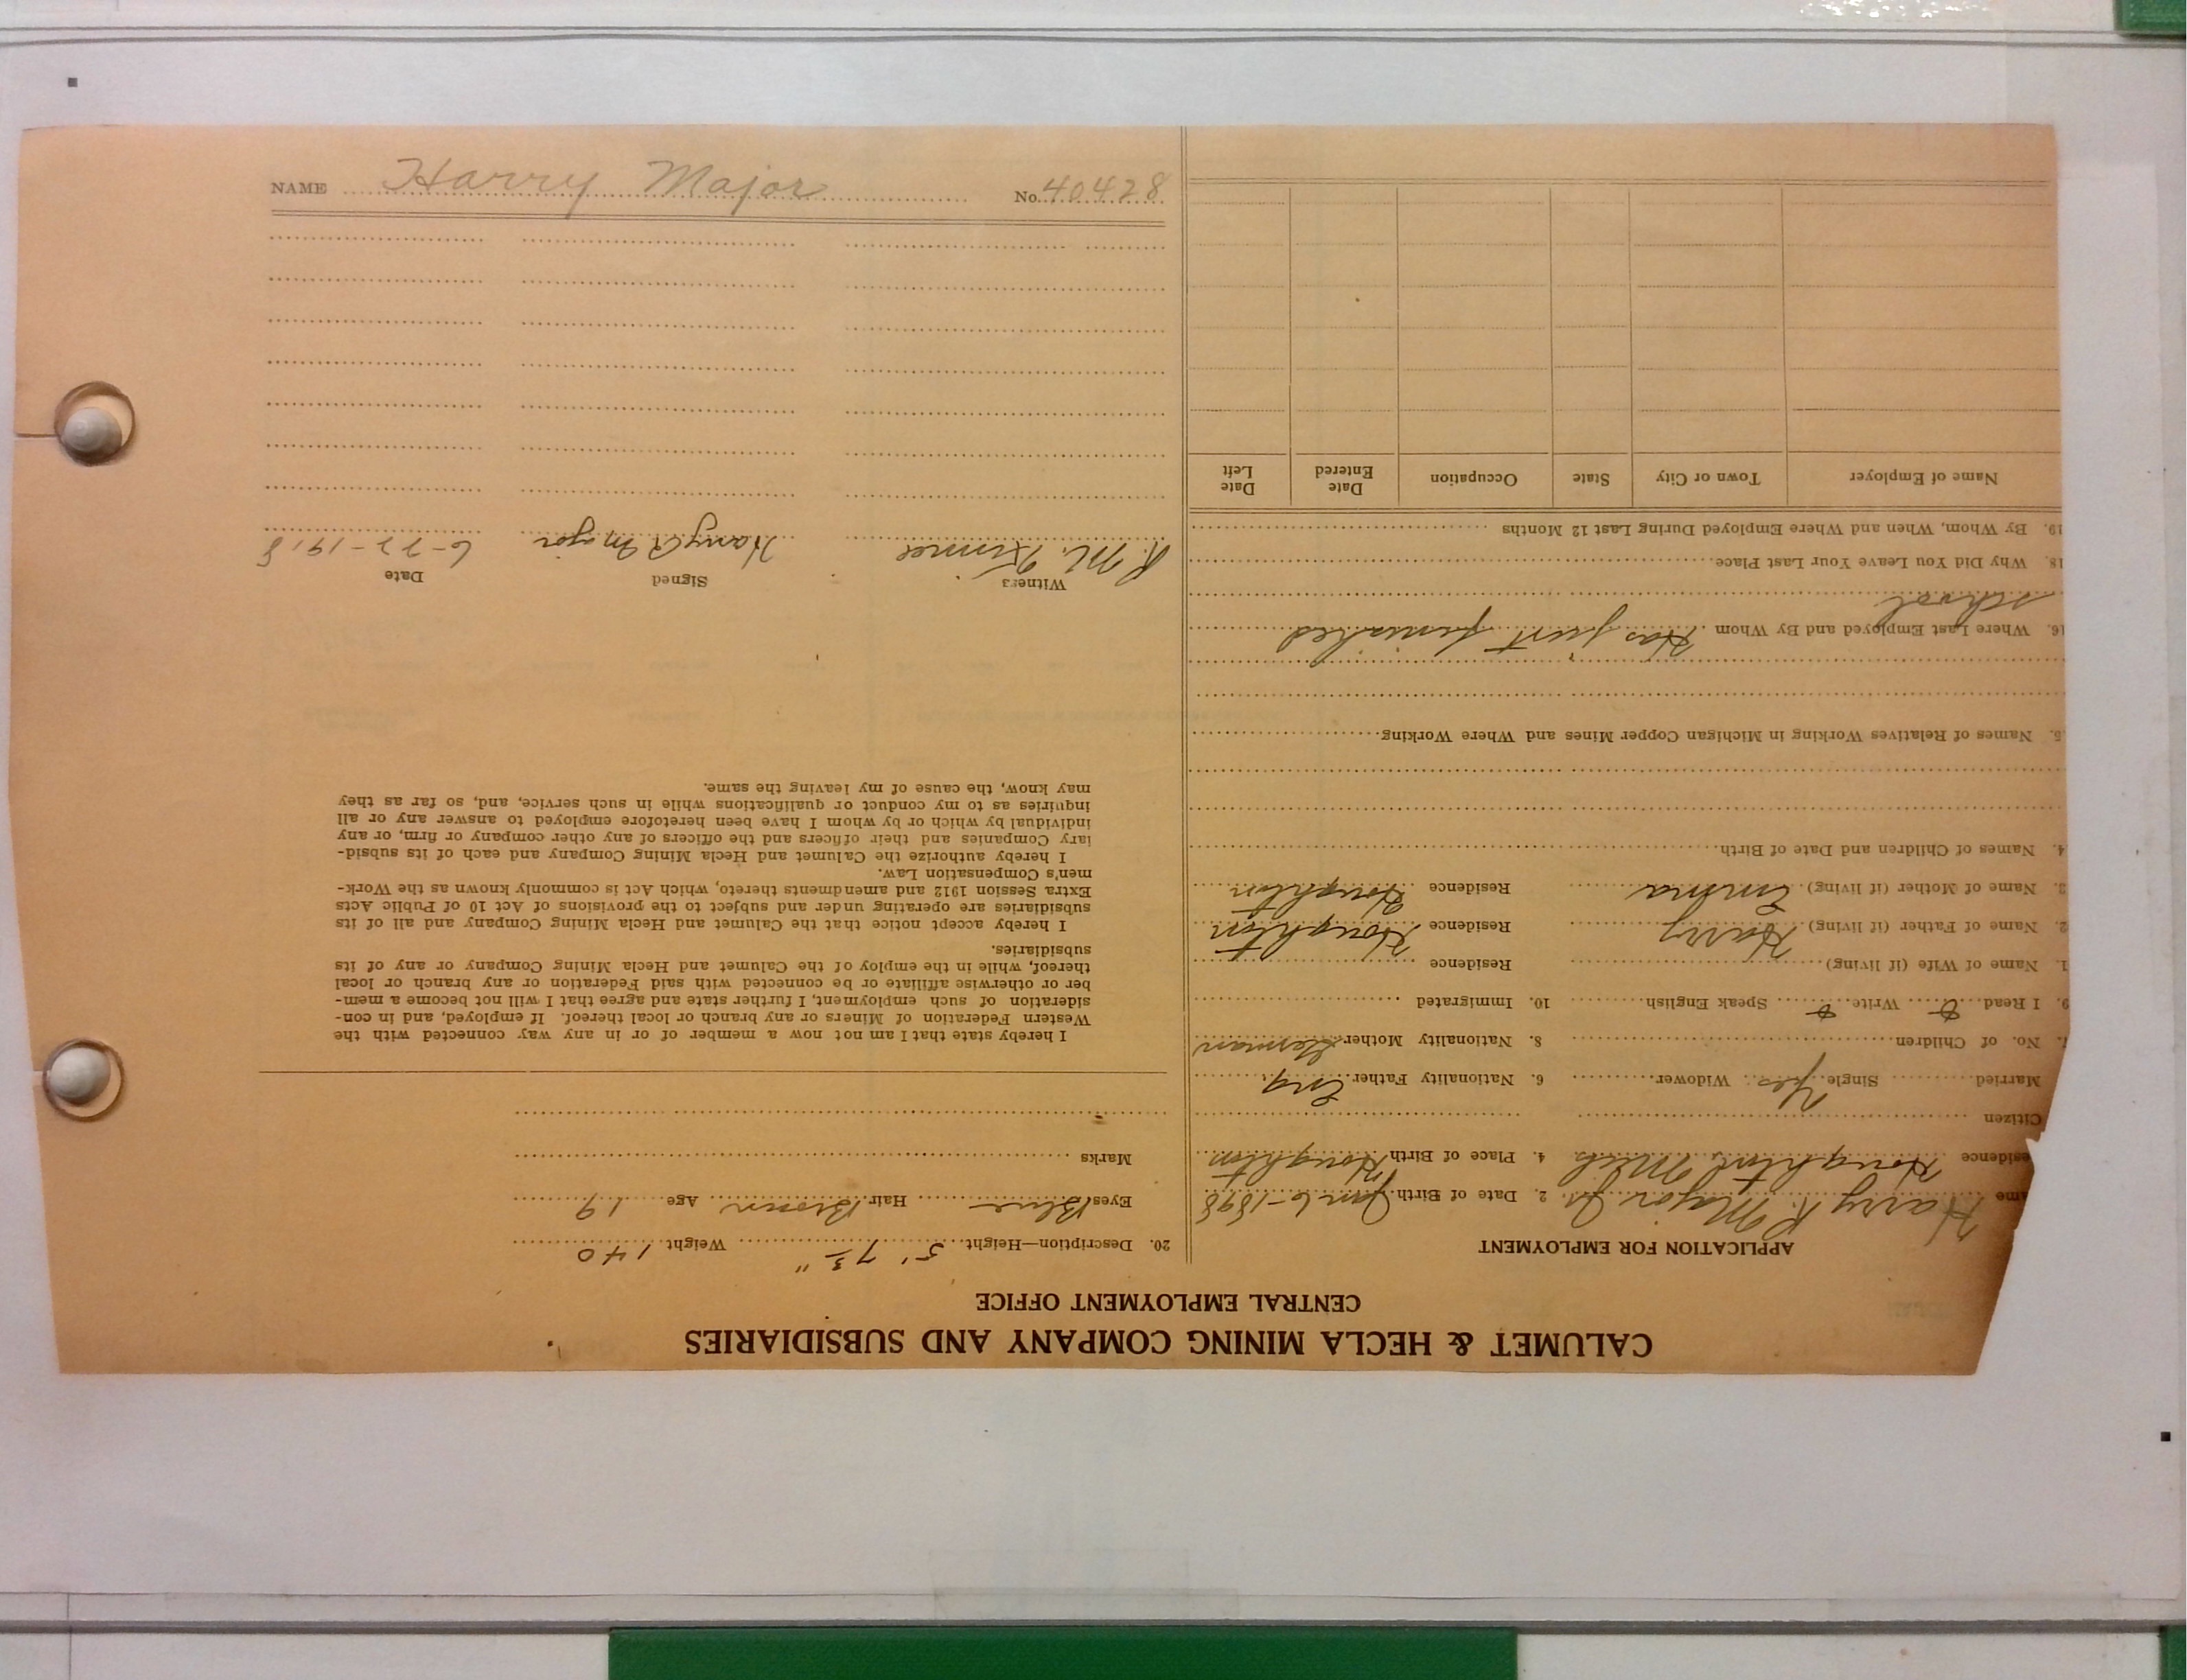 NAME Harry Major No. 40428
CALUMET & HECLA MINING COMPANY AND SUBSIDIARIES
CENTRAL EMPLOYMENT OFFICE
APPLICATION FOR EMPLOYMENT
ame Harry R. Major Jr. 2. Date of Birth Jan 6-1898
esidence Houghton, Mich 4. Place of Birth Houghton
Citizen
Married Single Yes Widower 6. Nationality Father Eng
7. No. of Children 8. Nationality Mother German
9. I Read Write Speak English 10. Immigrated
1. Name of Wife (if living) Residence
2. Name of Father (if living) Harry Residence Houghton
3. Name of Mother (if living) Emma Residence Houghton
4. Names of Children and Date of Birth
5. Names of Relatives Working in Michigan Copper Mines and Where Working
16. Where Last Employed and By Whom Has just finished
school
18. Why Did You Leave Your Last Place.
19. By Whom, When and Where Employed During Last 12 Months
Name of Employer Town or City State Occupation Date Entered Date Left
20. Description—Height 5' 7 3/4" Weight 140
Eyes Blue Hair Brown Age 19
Marks
I hereby state that I am not now a member of or in any way connected with the
Western Federation of Miners or any branch or local thereof. If employed, and in con-
sideration of such employment, I further state and agree that I will not become a mem-
ber or otherwise affiliate or be connected with said Federation or any branch or local
thereof, while in the employ of the Calumet and Hecla Mining Company or any of its
subsidiaries.
I hereby accept notice that the Calumet and Hecla Mining Company and all of its
subsidiaries are operating under and subject to the provisions of Act 10 of Public Acts
Extra Session 1912 and amendments thereto, which Act is commonly known as the Work-
men's Compensation Law.
I hereby authorize the Calumet and Hecla Mining Company and each of its subsid-
iary Companies and their officers and the officers of any other company or firm, or any
individual by which or by whom I have been heretofore employed to answer any or all
inquiries as to my conduct or qualifications while in such service, and, so far as they
may know, the cause of my leaving the same.
Witness Signed Date
R. M. Harry R Major 6-22-1918